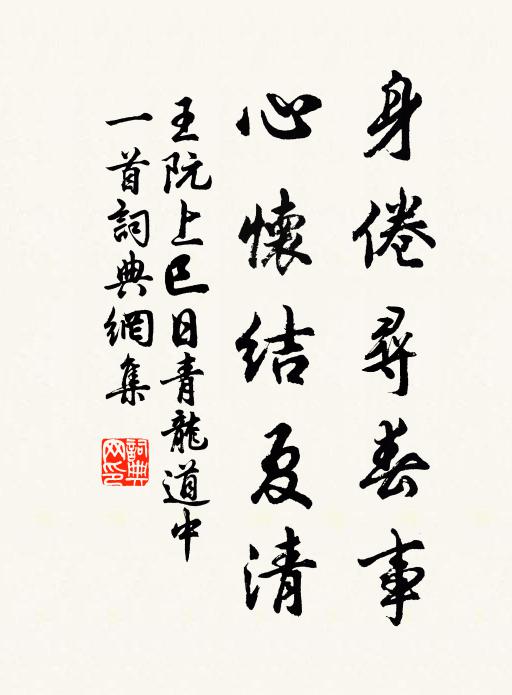 身倦尋春事
心懷結夏清
王阮上巳日青龍道中
一首詞典網集
詞典網印